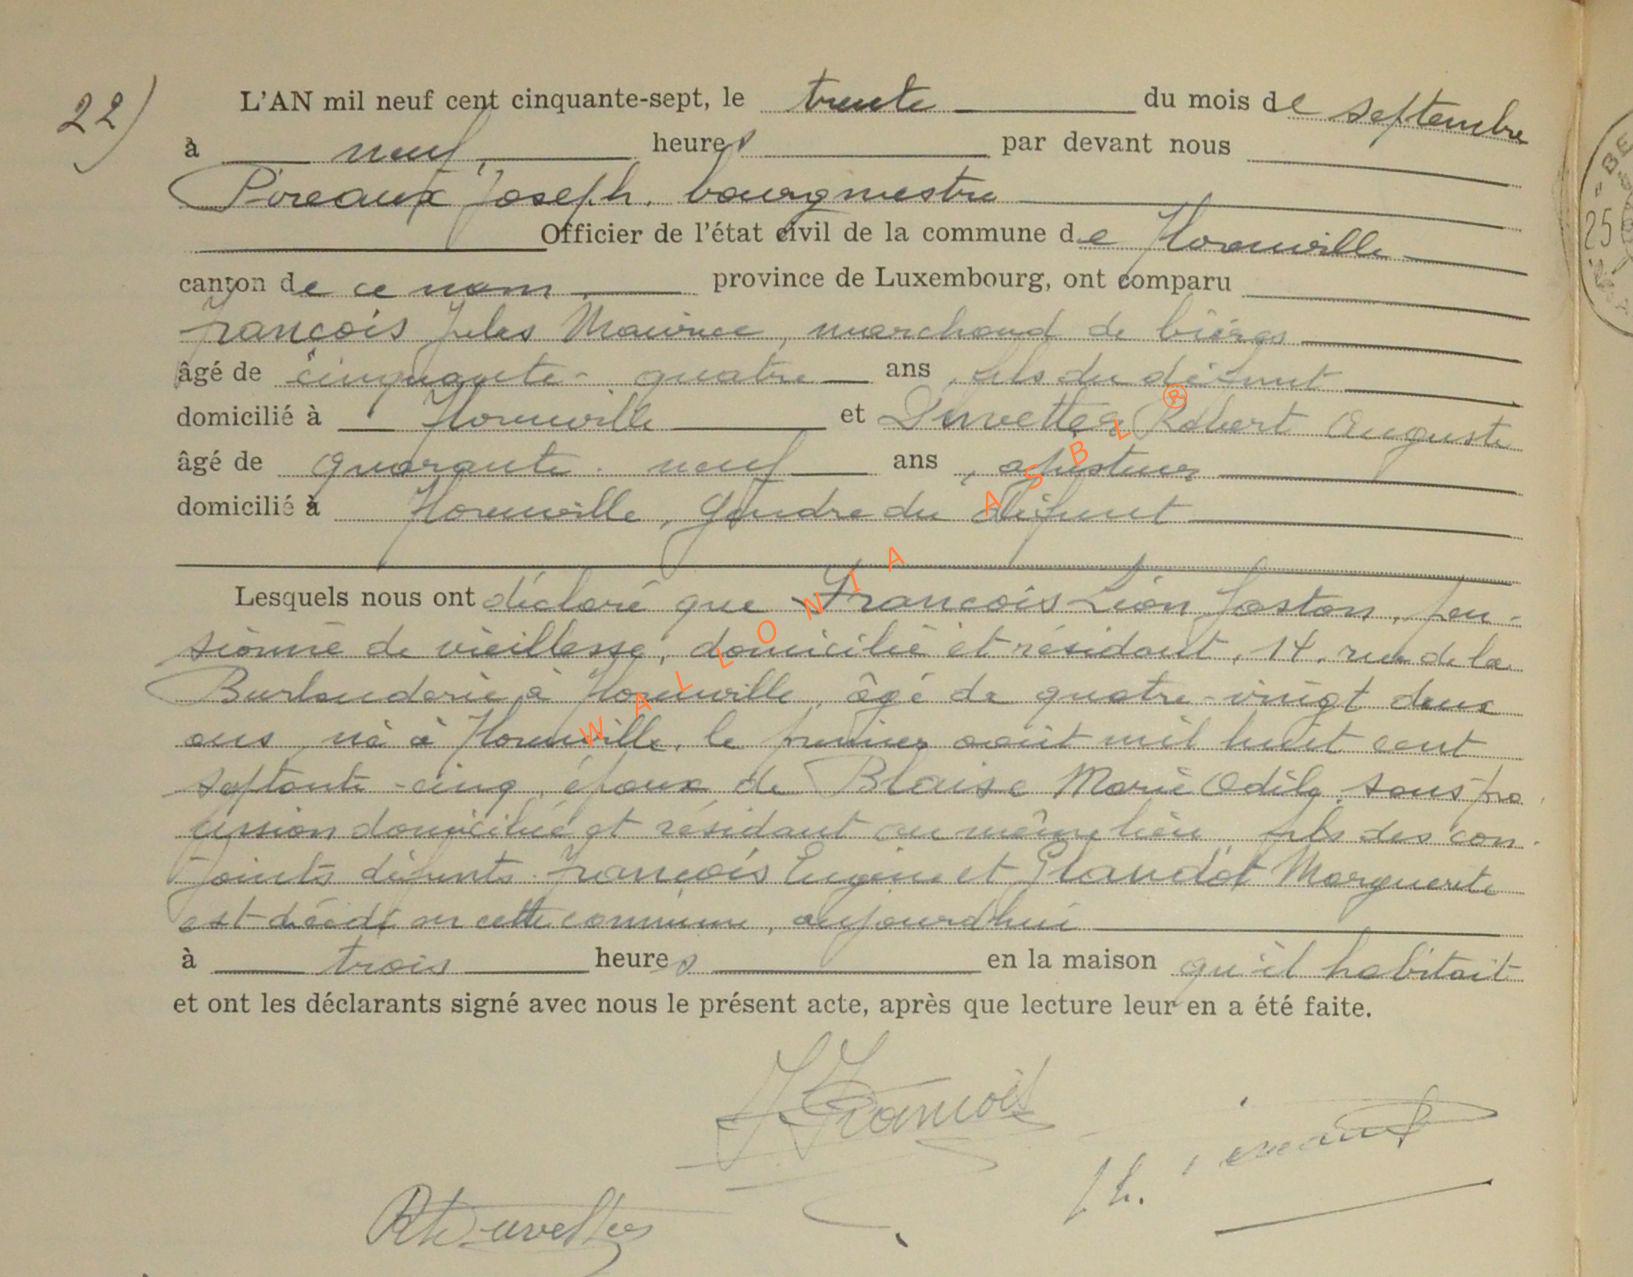 22)
L'AN mil neuf cent cinquante-sept, le trente du mois de septembre
à neuf heures par devant nous
Pireaux Joseph, bourgmestre
Officier de l'état civil de la commune de Florenville
canton de ce nom province de Luxembourg, ont comparu
François Jules Maurice, marchand de bières
âgé de cinquante-quatre ans, fils du défunt
domicilié à Florenville et Duvetter Robert Auguste
âgé de quarante-neuf ans, ajusteur
domicilié à Florenville, gendre du défunt
Lesquels nous ont déclaré que François Léon Gaston, pen-
sionné de vieillesse, domicilié et résidant, 14, rue de la
à Florenville, âgé de quatre-vingt deux
ans, né à Florenville, le premier août mil huit cent
septante-cinq, époux de Blaise Marie Odile, sans pro-
fession domiciliée et résidant au même lieu, fils des con-
joints défunts François Eugène et Glaudot Marguerite
est décédé en cette commune, aujourd'hui
à trois heures en la maison qu'il habitait
et ont les déclarants signé avec nous le présent acte, après que lecture leur en a été faite.
J François
WALLONIA ASBL ®
25